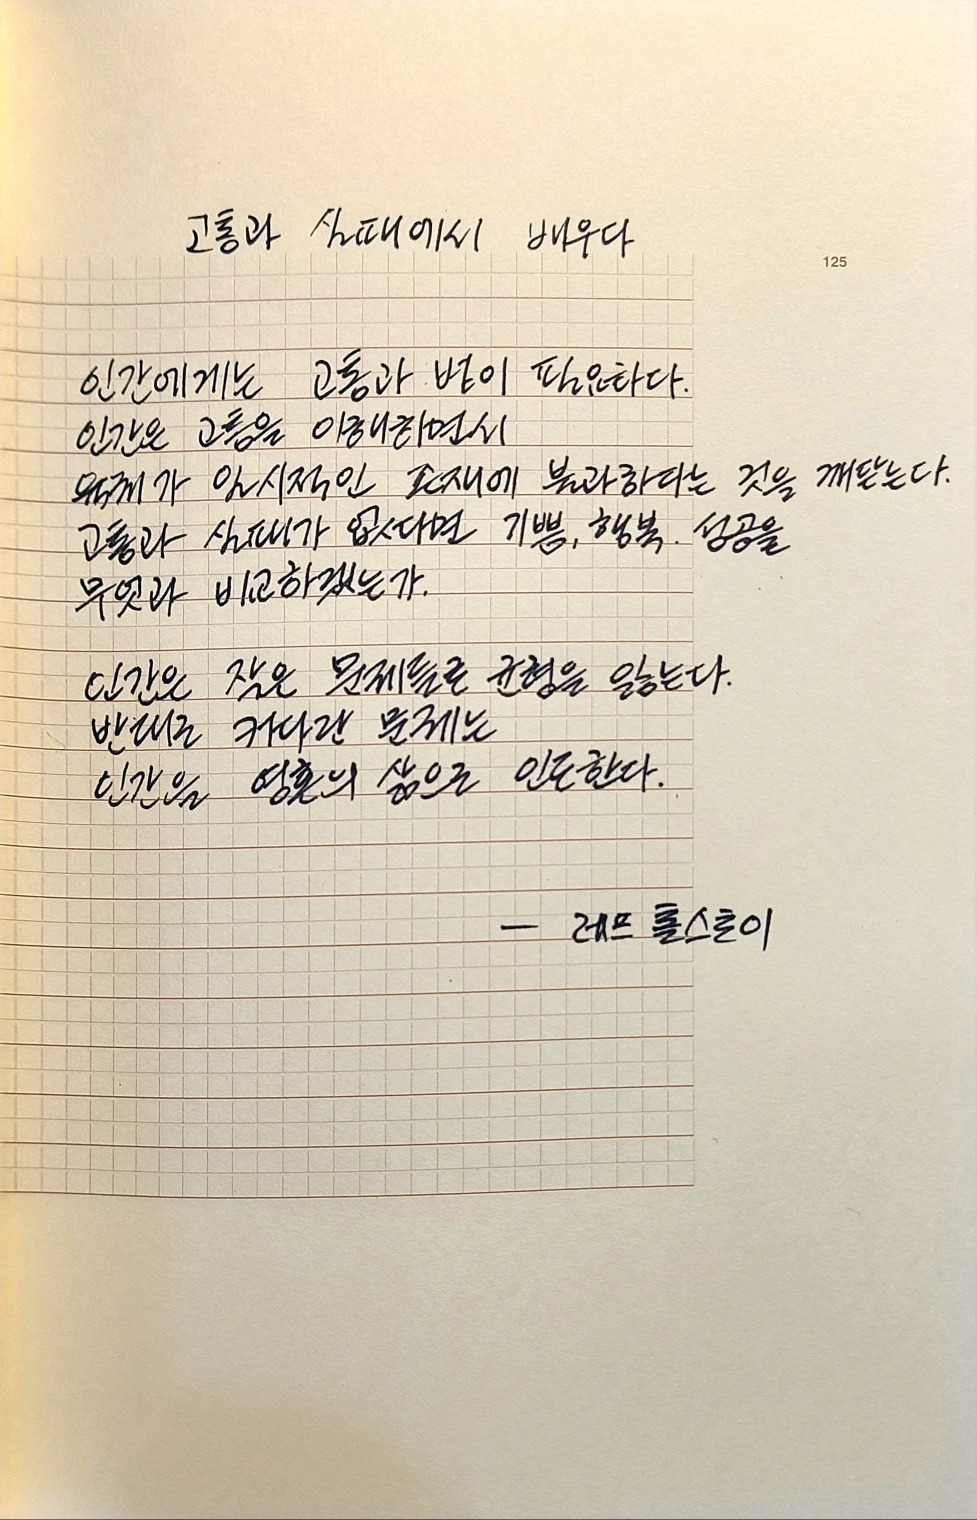 고통과 실패에서 배우다
125
인간에게는 고통과 병이 필요하다.
인간은 고통을 이해하면서
육체가 일시적인 존재에 불과하다는 것을 깨닫는다.
고통과 실패가 없다면 기쁨, 행복, 성공을
무엇과 비교하겠는가.
인간은 작은 문제들로 균형을 잃는다.
반대로 커다란 문제는
인간을 영혼의 삶으로 인도한다.
— 레프 톨스토이